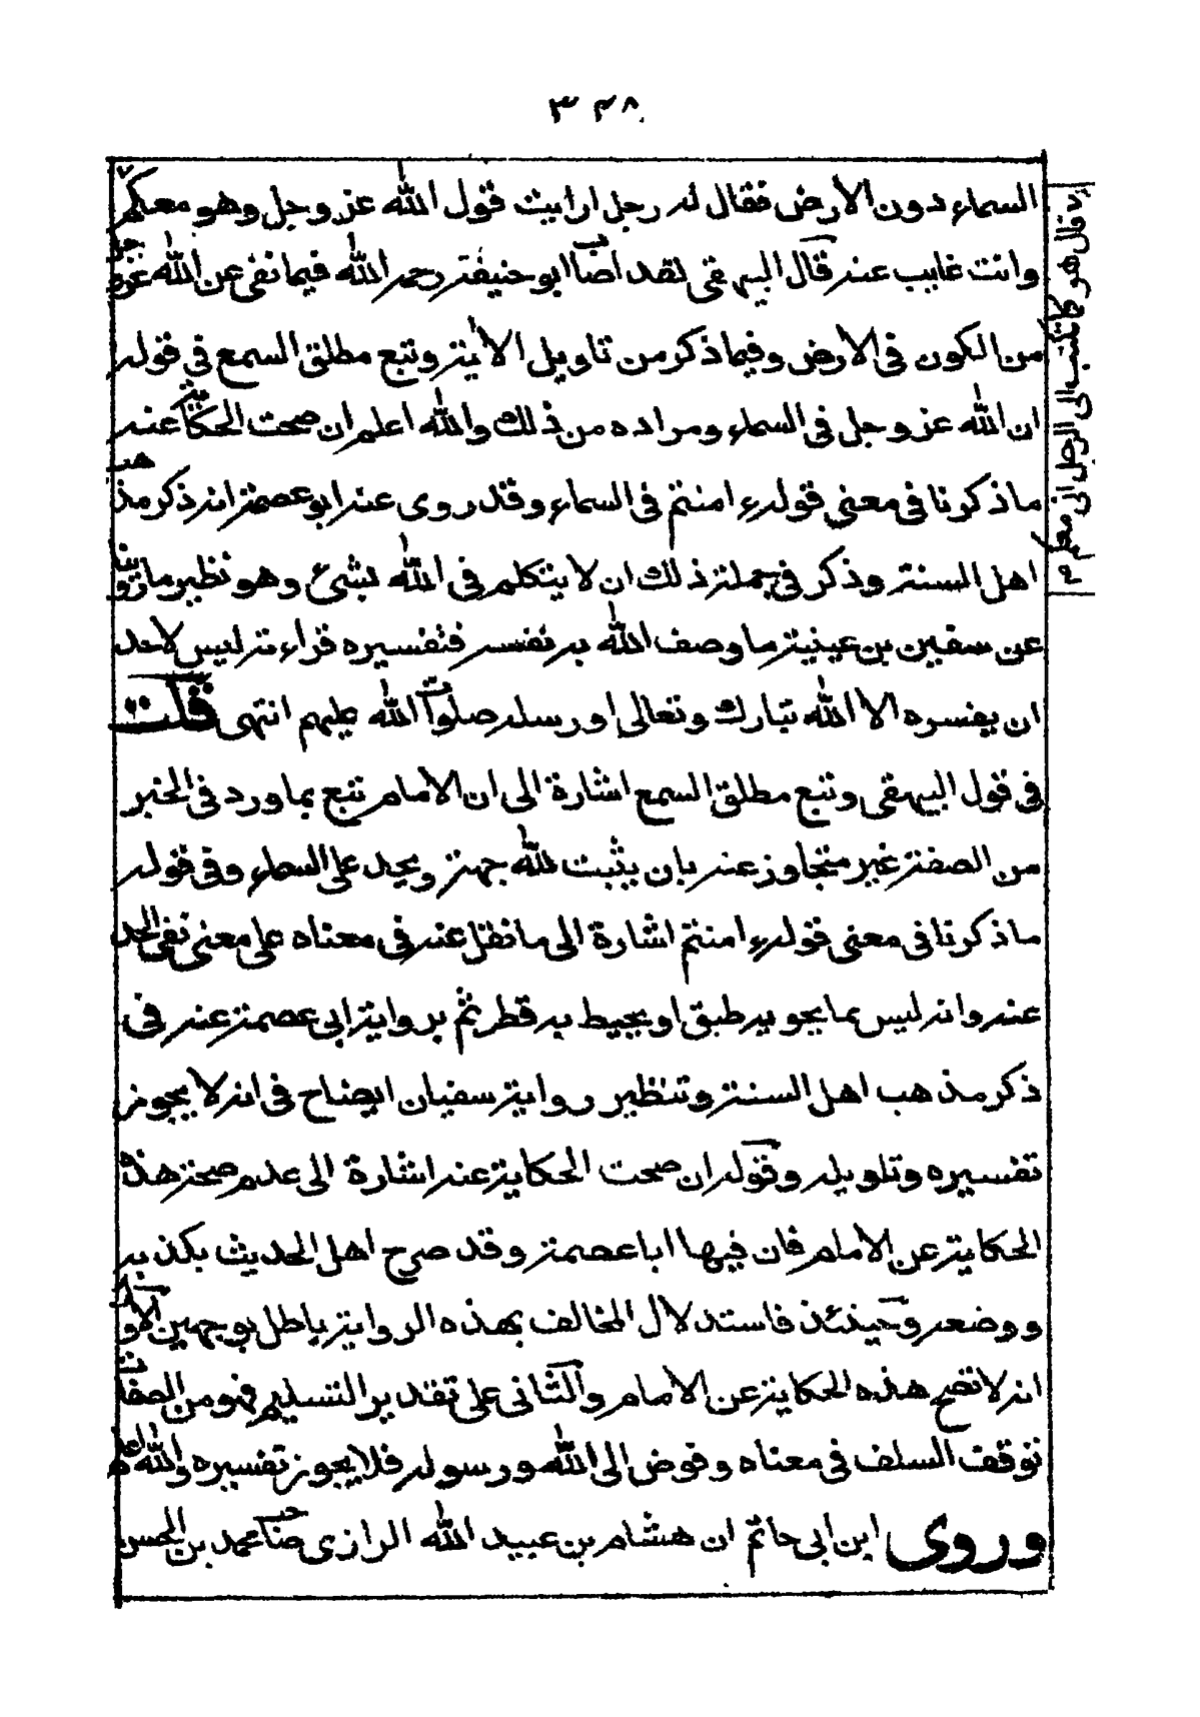 ٣٤٨
السماء دون الارض فقال له رجل ارايت قول الله عز وجل وهو معكم
وانت غايب عنه قال البيهقى لقد اصاب ابو حنيفة رحمه الله فيما نفى عن الله عز وجل
من الكون فى الارض وفيما ذكر من تاويل الاية وتبع مطلق السمع فى قوله
ان الله عز وجل فى السماء ومراده من ذلك والله اعلم ان صحت الحكاية عنه
ما ذكرنا فى معنى قوله ء امنتم فى السماء وقد روى عنه ابو عصمة انه ذكر مذهب
اهل السنة وذكر فى جملة ذلك ان لا يتكلم فى الله بشىء وهو نظير ما روينا
عن سفين بن عيينة ما وصف الله به نفسه فتفسيره قراءته ليس لاحد
ان يفسره الا الله تبارك وتعالى او رسله صلوات الله عليهم انتهى قلت
فى قول البيهقى وتبع مطلق السمع اشارة الى ان الامام تبع بما ورد فى الخبر
من الصفة غير متجاوز عنه بان يثبت لله جهة ويحد على السماء وفى قوله
ما ذكرنا فى معنى قوله ء امنتم اشارة الى ما نقل عنه فى معناه على معنى نفى الحد
عنه وانه ليس بما يحويه طبق او يحيط به قطر ثم بروايته ابى عصمة عنه فى
ذكر مذهب اهل السنة وتنظير رواية سفيان ايضاح فى انه لا يجوز
تفسيره وتاويله وقوله ان صحت الحكاية عنه اشارة الى عدم صحة هذه
الحكاية عن الامام فان فيها ابا عصمة وقد صرح اهل الحديث بكذبه
ووضعه وحينئذ فاستدلال المخالف بهذه الرواية باطل بوجهين الاول
انه لا تصح هذه الحكاية عن الامام والثانى على تقدير التسليم فهو من الصفات
توقف السلف فى معناه وفوض الى الله ورسوله فلا يجوز تفسيره والله اعلم
وروى ابن ابى حاتم ان هشام بن عبيد الله الرازى صاحب محمد بن الحسن
قال هو كما تكتب الى الرجل انى معكم